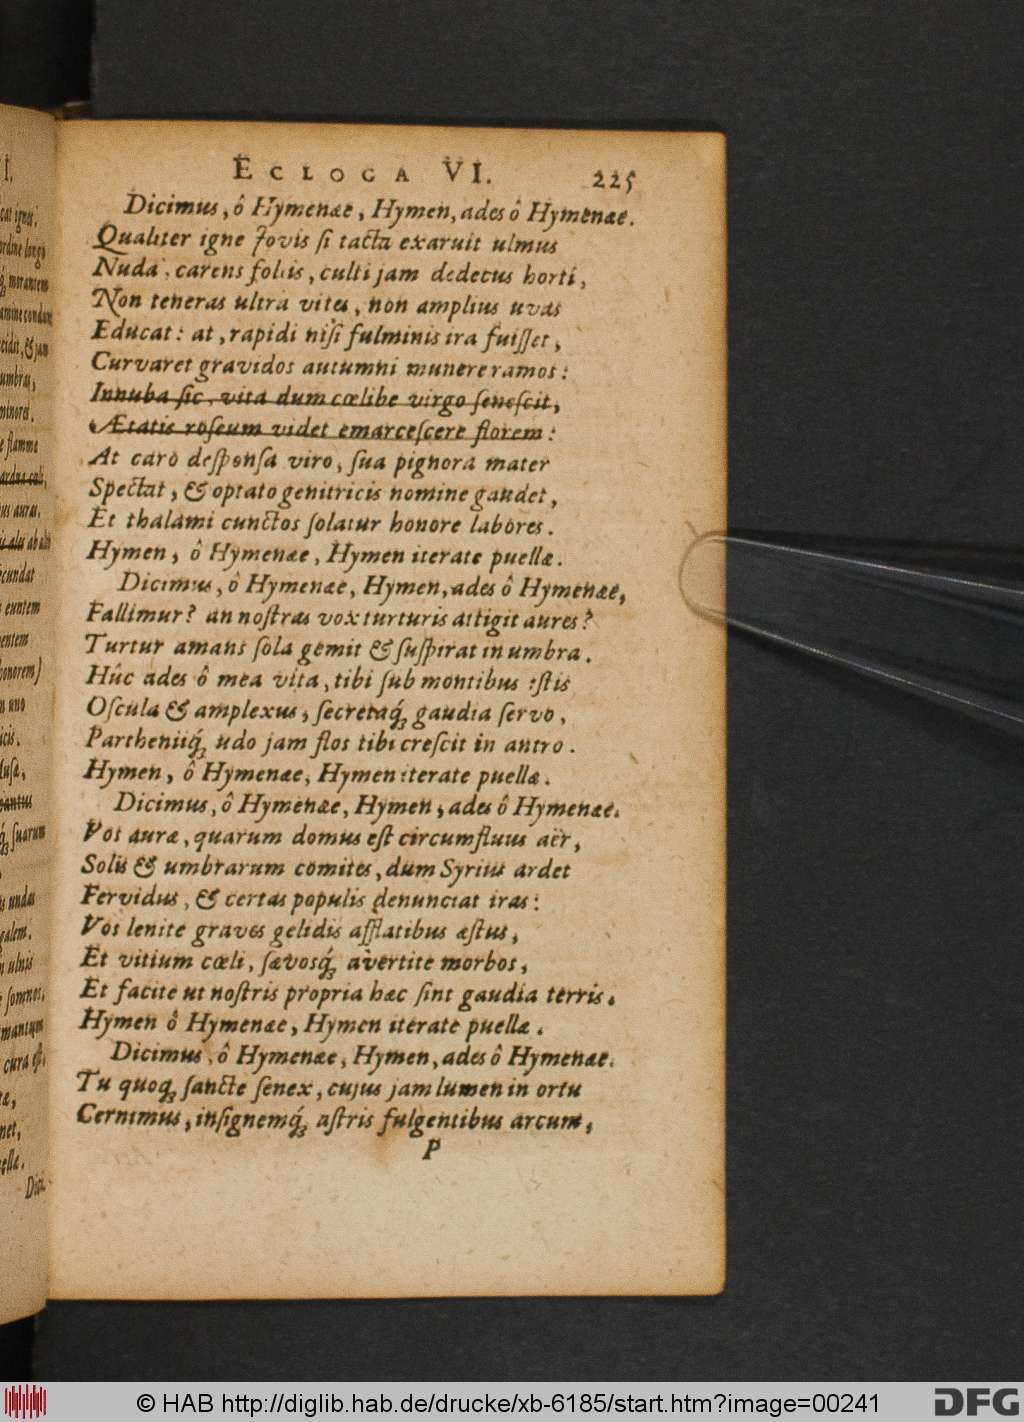 ECLOGA VI. 225
Dicimus, ô Hymenæe, Hymen, ades ô Hymenæe.
Qualiter igne Jovis si tacta exaruit ulmus
Nuda, carens foliis, culti jam dedecus horti,
Non teneras ultra vites, non amplius uvas
Educat: at, rapidi nisi fulminis ira fuisset,
Curvaret gravidos autumni munere ramos:
Innuba sic, vita dum cœlibe virgo senescit,
Ætatis roseum videt emarcescere florem:
At caro desponsa viro, sua pignora mater
Spectat, & optato genitricis nomine gaudet,
Et thalami cunctos solatur honore labores.
Hymen, ô Hymenæe, Hymen iterate puellæ.
Dicimus, ô Hymenæe, Hymen, ades ô Hymenæe,
Fallimur? an nostras vox turturis attigit aures?
Turtur amans sola gemit & suspirat in umbra.
Hûc ades ô mea vita, tibi sub montibus istis
Oscula & amplexus, secretaq́; gaudia servo,
Partheniiq́; udo jam flos tibi crescit in antro.
Hymen, ô Hymenæe, Hymen iterate puellæ.
Dicimus, ô Hymenæe, Hymen, ades ô Hymenæe.
Vos auræ, quarum domus est circumfluus aër,
Solis & umbrarum comites, dum Syrius ardet
Fervidus, & certas populis denunciat iras:
Vos lenite graves gelidis afflatibus æstus,
Et vitium cœli, sævosq́; avertite morbos,
Et facite ut nostris propria hæc sint gaudia terris.
Hymen ô Hymenæe, Hymen iterate puellæ.
Dicimus, ô Hymenæe, Hymen, ades ô Hymenæe.
Tu quoq; sancte senex, cujus jam lumen in ortu
Cernimus, insignemq́; astris fulgentibus arcum,
P
© HAB http://diglib.hab.de/drucke/xb-6185/start.htm?image=00241
DFG